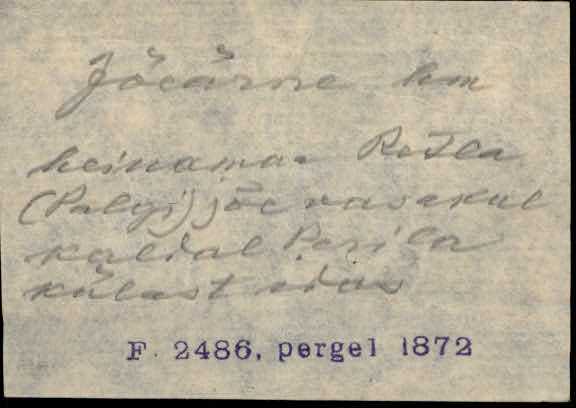 Jõeäärne hm
heinamaa Retla
(Palgi) jõe vasakul
kaldal Perila
külast idas
F. 2486, pergel 1872